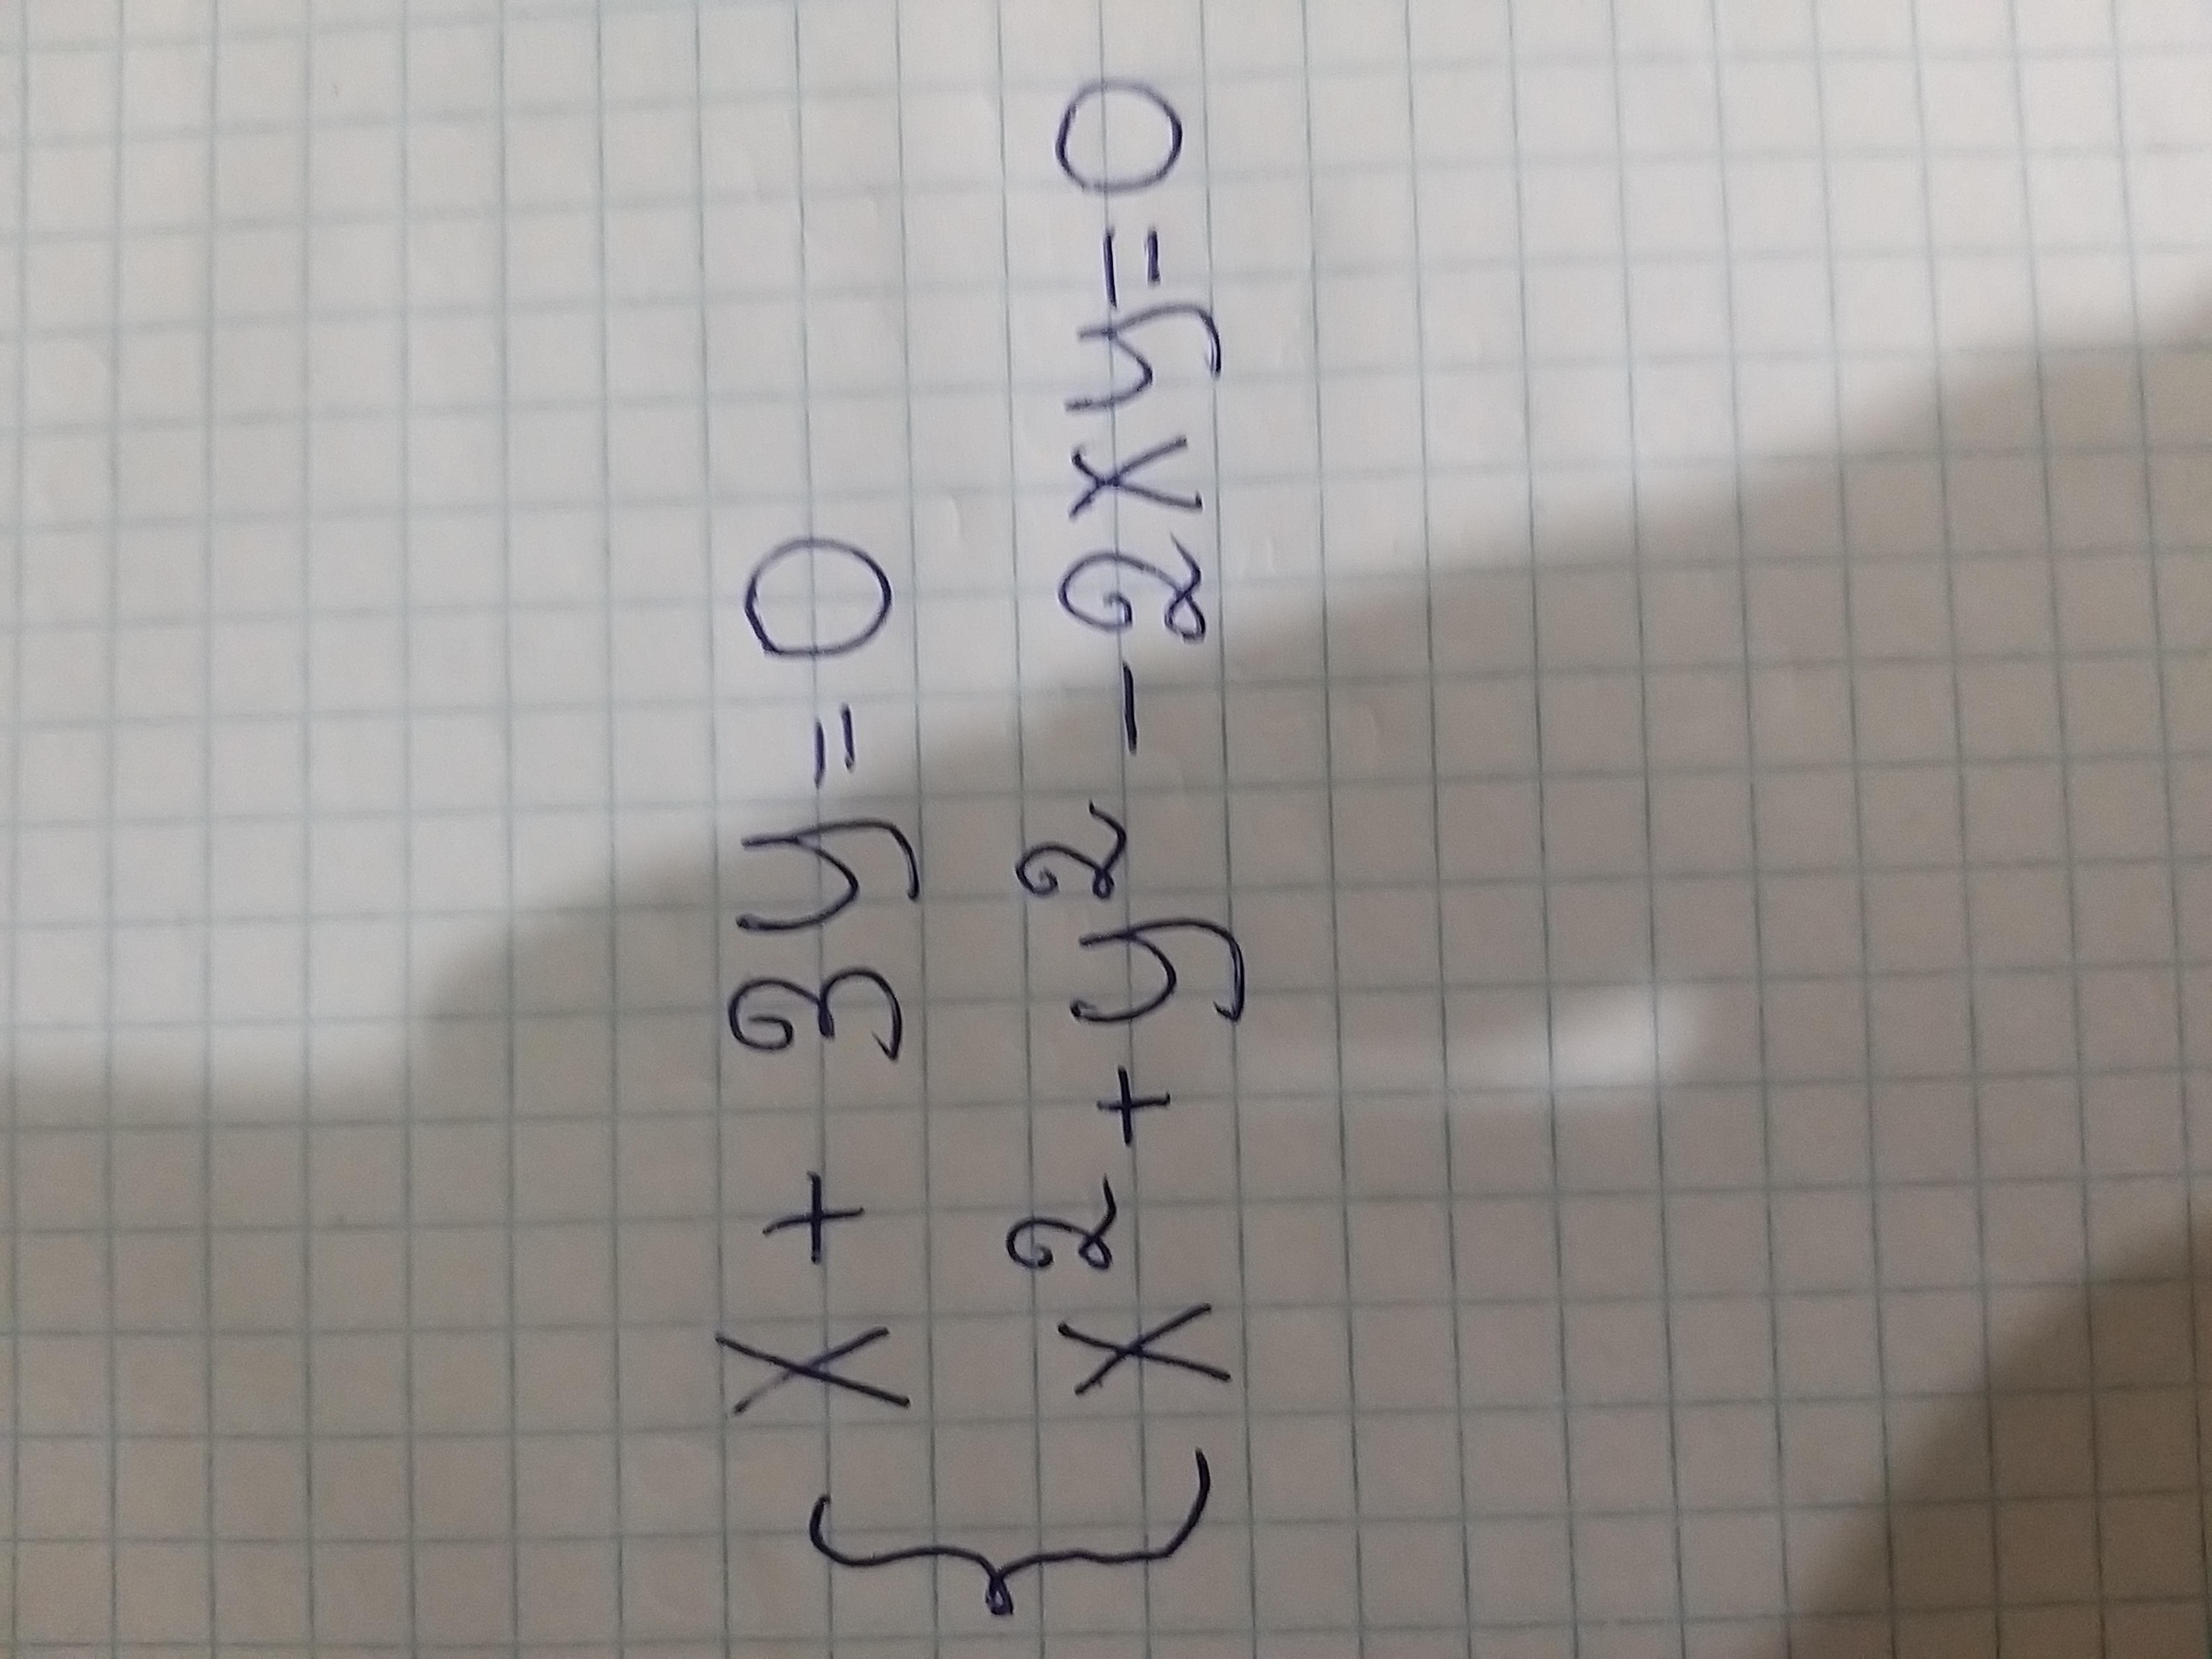 x + 3y = 0
x² + y² - 2xy = 0